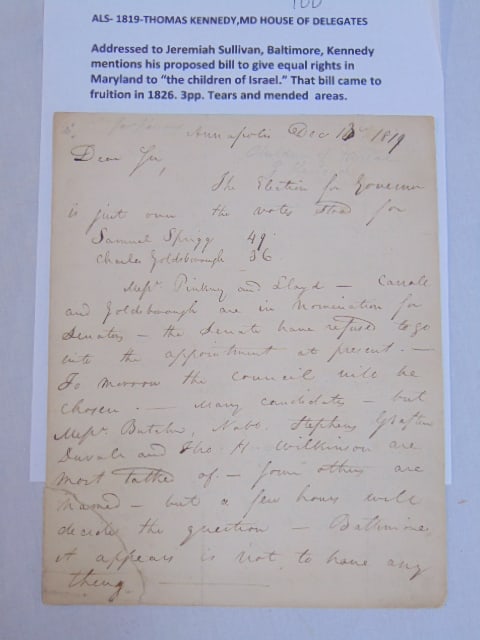 100
ALS- 1819-THOMAS KENNEDY,MD HOUSE OF DELEGATES
Addressed to Jeremiah Sullivan, Baltimore, Kennedy
mentions his proposed bill to give equal rights in
Maryland to “the children of Israel.” That bill came to
fruition in 1826. 3pp. Tears and mended areas.
Annapolis Dec 13 1819
Dear Sir,
The Election for Governor
is just over the votes stood for
Samuel Sprigg 49
Charles Goldsborough 36
Messrs. Pinkney and Lloyd — Carroll
and Goldsborough are in nomination for
Senators — the Senate have refused to go
into the appointment at present. —
To morrow the council will be
chosen. — Many candidates — but
Messrs. Butcher, Nabb. Stephens
Duvall and Tho. H. Wilkinson are
most talked of. — some others are
named — but a few hours will
decide the question — Baltimore,
it appears is not to have any
thing.